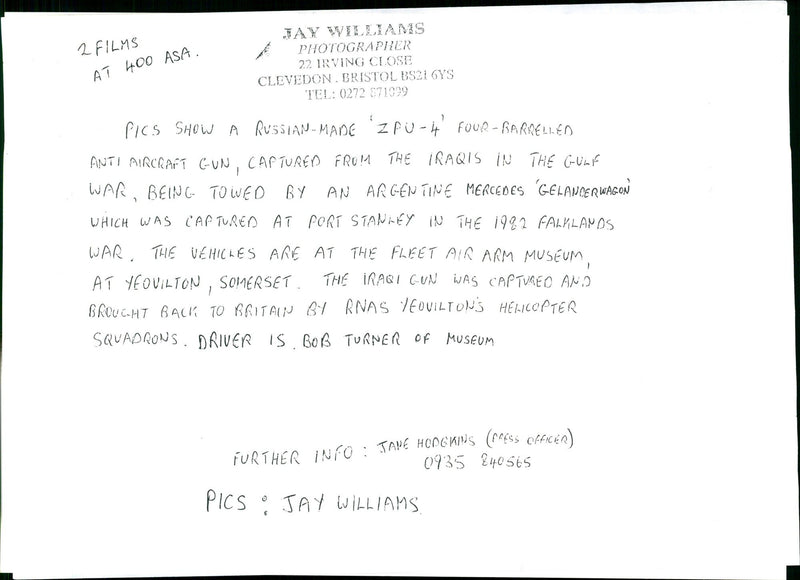 2 FILMS
AT 400 ASA.
JAY WILLIAMS
PHOTOGRAPHER
22 IRVING CLOSE
CLEVEDON . BRISTOL BS21 6YS
TEL: 0272 871099
PICS SHOW A RUSSIAN-MADE 'ZPU-4' FOUR-BARRELLED
ANTI AIRCRAFT GUN, CAPTURED FROM THE IRAQIS IN THE GULF
WAR, BEING TOWED BY AN ARGENTINE MERCEDES 'GELANDERWAGON'
WHICH WAS CAPTURED AT PORT STANLEY IN THE 1982 FALKLANDS
WAR. THE VEHICLES ARE AT THE FLEET AIR ARM MUSEUM,
AT YEOVILTON, SOMERSET. THE IRAQI GUN WAS CAPTURED AND
BROUGHT BACK TO BRITAIN BY RNAS YEOVILTON'S HELICOPTER
SQUADRONS. DRIVER IS BOB TURNER OF MUSEUM
FURTHER INFO: JANE HODGKINS (PRESS OFFICER)
0935 840565
PICS: JAY WILLIAMS.